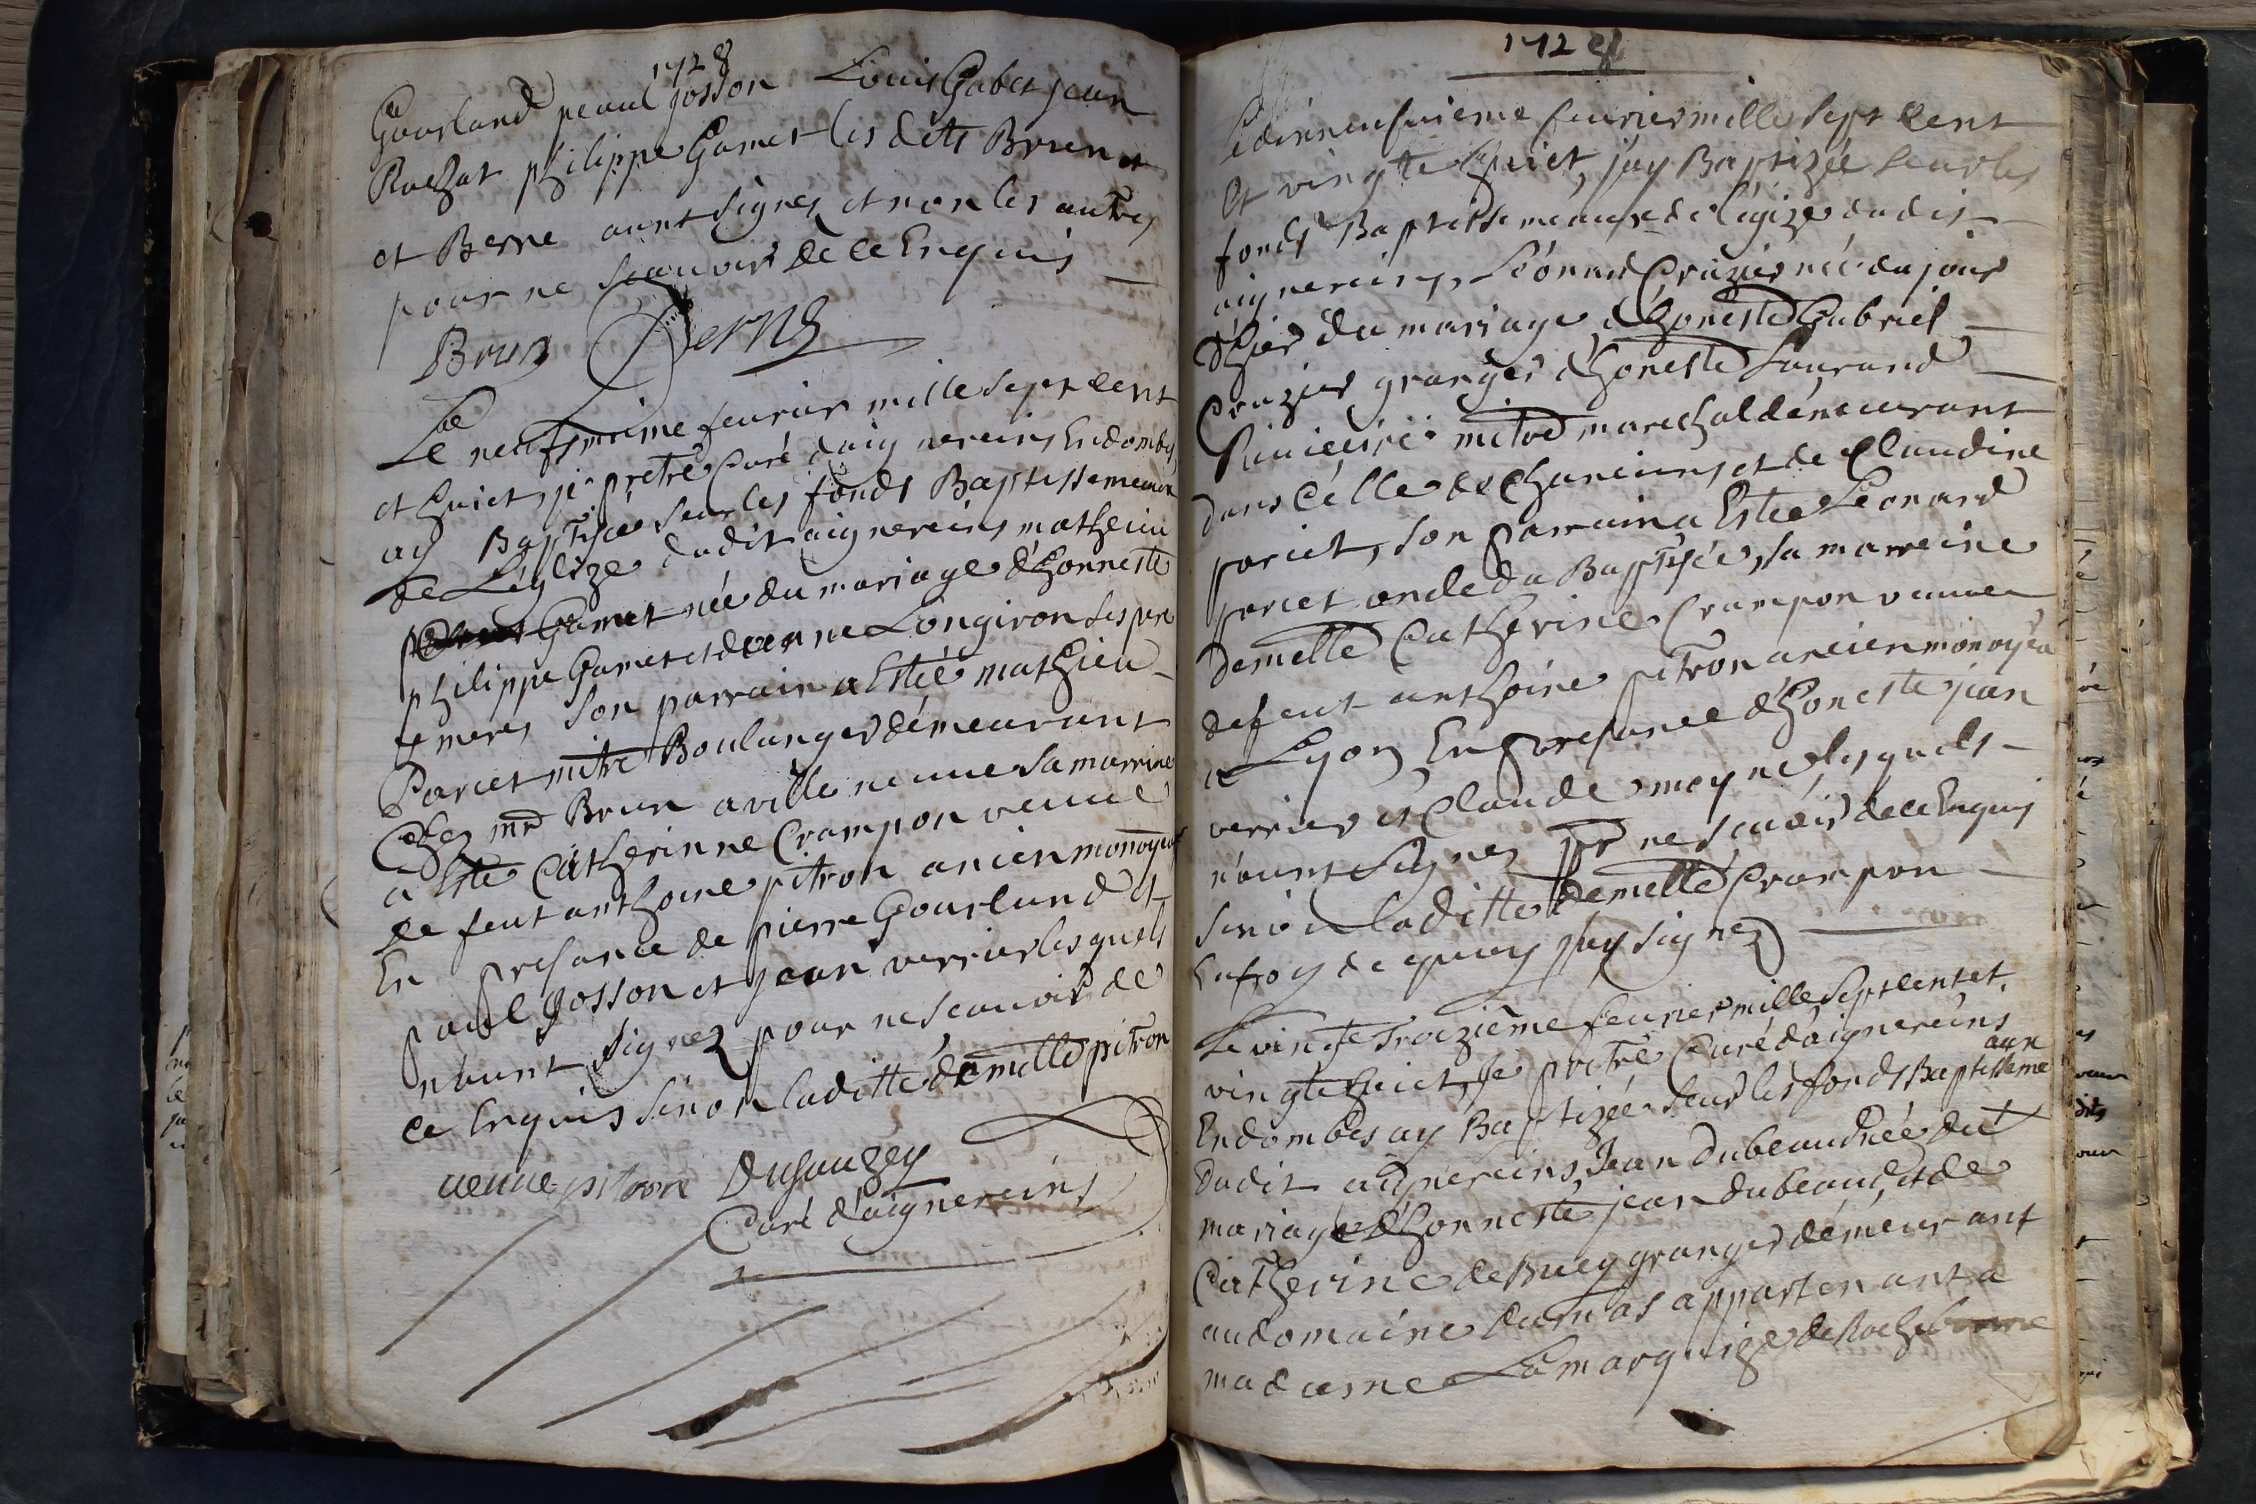 1728
Gourland peaul Josson Louis Gabet jean
Rochat philippe Gamet les dits Brun et
et Berne aunt signez et non les autres
pour ne scauoir de ce Enquis
Brun Berne
Le neufsvieme feurier mille sept cent
et huict, je pretre Curé daignereins Endombes
ay Baptisée seur les fonds Baptissemeaux
de Léglize dudit aignereins mathieu
Gamet née du mariage d'honneste
philippe Gamet et Longiron ses pere
et meres son parrain a Esteé mathieu
Pariet mitre Boulanger démeurant
Chez mr Brun a ville neuue sa marrine
a Este Catherinne Crampon veuue
de feut anthoine pitron ancien monoyeur
En presance de pierre Gourland et
paul Josson et jean verrier lesquels
n'aunt signez pour ne scauoir de
ce Enquis sinon laditte demelle pitron
ueuue pitron Dusauzey
Curé d'aignereins
1728
Le dixneufuieme feurier mille sept cent
et vingte huict, j'ay Baptizée seur les
fonds Baptissemeaux de légize dudis
aignereins, Léonard Crozier née du jour
d'hier du mariage d'honeste Gabriel
Crozier granger d'honeste Laurand
mitre marechal démeurant
dans célle de Chaneins et de Claudine
pariet, son parrain a Estee Léonard
pariet oncle du Baptisée, sa marreine
demelle Catherine Crampon veuue
defeut anthoine pitron ancien monoyeu
a Lyon En presance d'honeste jean
verrier et Claude moyne lesquels
n'aunt signez pr ne scauoir de ce Enquis
sinon laditte demelle Crampon
Enfoy de quoy j'ay signez
Le vingte troizième feurier mille sept cent et
vingte huict, Je pretre Curé daignereins
Endombes ay Baptizée seur les fonds Baptisseme
aux
dudit aignereins Jean Dubeaud née du
mariage d'honneste jean dubeaud, et de
Catherine deBuey granger démeurant
au domaine dumas appartenant a
madame Lamarquize deRochebonne